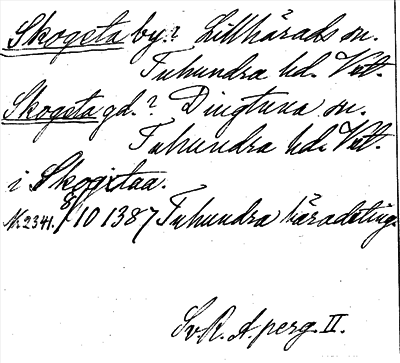 Skogsta by? Lillhärads sn.
Tuhundra hd. Vstl.
Skogsta gd.? Dingtuna sn.
Tuhundra hd. Vstl.
i Skogxtaa.
Nr. 2341. 8/10 1387 Tuhundra häradsting.
Sv.R.A. perg. II.